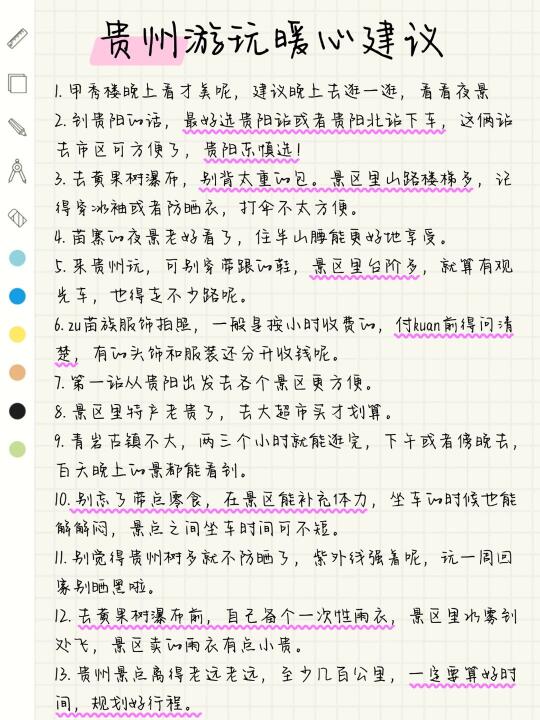 贵州游玩暖心建议
1. 甲秀楼晚上看才美呢，建议晚上去逛一逛，看看夜景
2. 到贵阳的话，最好选贵阳站或者贵阳北站下车，这俩站
去市区可方便了，贵阳东慎选！
3. 去黄果树瀑布，别背太重的包。景区里山路楼梯多，记
得穿冰袖或者防晒衣，打伞不太方便。
4. 苗寨的夜景老好看了，住半山腰能更好地享受。
5. 来贵州玩，可别穿带跟的鞋，景区里台阶多，就算有观
光车，也得走不少路呢。
6. zu苗族服饰拍照，一般是按小时收费的，付kuan前得问清
楚，有的头饰和服装还分开收钱呢。
7. 第一站从贵阳出发去各个景区更方便。
8. 景区里特产老贵了，去大超市买才划算。
9. 青岩古镇不大，两三个小时就能逛完，下午或者傍晚去，
白天晚上的景都能看到。
10. 别忘了带点零食，在景区能补充体力，坐车的时候也能
解解闷，景点之间坐车时间可不短。
11. 别觉得贵州树多就不防晒了，紫外线强着呢，玩一周回
家别晒黑啦。
12. 去黄果树瀑布前，自己备个一次性雨衣，景区里水雾到
处飞，景区卖的雨衣有点小贵。
13. 贵州景点离得老远老远，至少几百公里，一定要算好时
间，规划好行程。